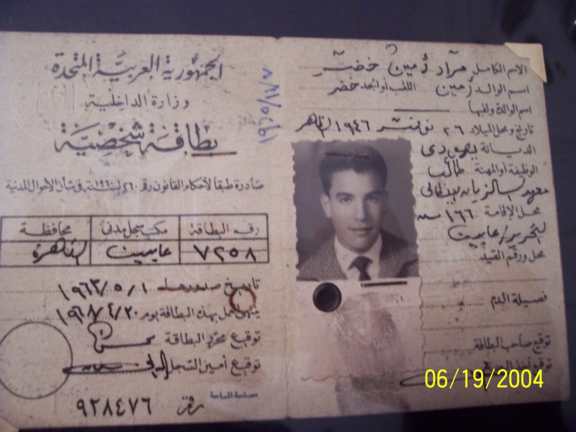 الجمهورية العربية المتحدة
وزارة الداخلية
بطاقة شخصية
صادرة طبقا لأحكام القانون رقم ٢٦٠ لسنة ١٩٦٠ في شأن الأحوال المدنية
رقم البطاقة مكتب سجل مدنى محافظة
٧٢٥٨ عابدين القاهرة
تاريخ صدورها ١٩٦٣/٥/١
توقيع محرر البطاقة
توقيع أمين السجل
رقم ٩٢٨٤٧٦
مصلحة المساحة
الاسم الكامل مراد أمين خضر
اسم الوالد أمين اللقب أو الجد خضر
اسم الوالدة ولقبها
تاريخ ومحل الميلاد ٢٦ نوفمبر ١٩٤٦ القاهرة
الديانة يهودى
الوظيفة أو المهنة طالب
محل الإقامة ١٦٦ ش
التحرير / عابدين
محل ورقم القيد
فصيلة الدم
توقيع صاحب البطاقة
06/19/2004